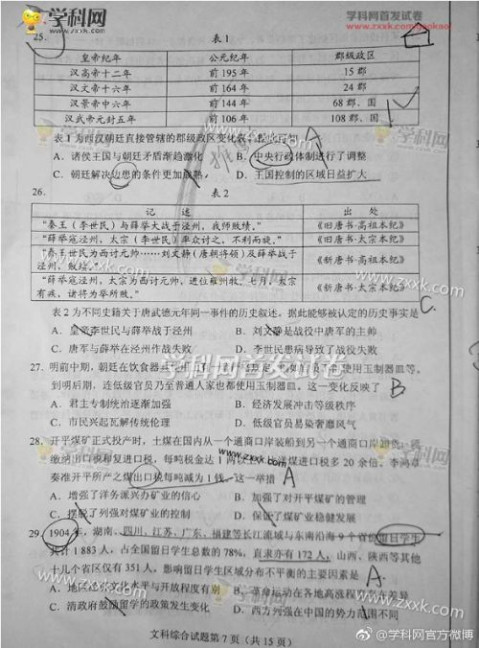 学科网首发试卷
25.
表1
皇帝纪年 公元纪年 郡级政区
汉高帝十二年 前195年 15郡
汉文帝十六年 前164年 24郡
汉景帝中六年 前144年 68郡、国
汉武帝元封五年 前106年 108郡、国
表1为西汉朝廷直接管辖的郡级政区变化表。 A
A. 诸侯王国与朝廷矛盾渐趋激化 B. 中央行政体制进行了调整
C. 朝廷解决边患的条件更加成熟 D. 王国控制的区域日益扩大
26. 表2
记述 出处
“秦王（李世民）与薛举大战于泾州，我师败绩。” 《旧唐书·高祖本纪》
“薛举寇泾州，太宗（李世民）率众讨之，不利而旋。” 《旧唐书·太宗本纪》
“秦王世民为西讨元帅……刘文静（唐朝将领）及薛举战于泾州，败绩。” 《新唐书·高祖本纪》
“薛举寇泾州，太宗为西讨元帅，进位雍州牧。七月，太宗有疾，诸将为举所败。” 《新唐书·太宗本纪》
C.
表2为不同史籍关于唐武德元年同一事件的历史叙述。据此能够被认定的历史事实是
A. 皇帝李世民与薛举战于泾州 B. 刘文静是战役中唐军的主帅
C. 唐军与薛举在泾州作战失败 D. 李世民患病导致了战役失败
27. 明前中期，朝廷在饮食器
使用玉制器皿等。
到明后期，连低级官员乃至普通人家也都使用玉制器皿。这一变化反映了 B
A. 君主专制统治逐渐加强 B. 经济发展冲击等级秩序
C. 市民兴起瓦解传统伦理 D. 低级官员易染奢靡风气
28. 开平煤矿正式投产时，土煤在国内从一个通商口岸装船到另一个通商口岸
缴纳出口税和复进口税，每吨税金达1两
洋煤进口税多20余倍。李鸿章
奏准开平所产之煤出口税每吨减为1钱。这一举措 A
A. 增强了洋务派兴办矿业的信心 B. 加强了对开平煤矿的管理
C. 摆脱了列强对煤矿的控制 D. 保证了煤矿业稳健发展
29. 1904年，湖南、四川、江苏、广东、福建等长江流域与东南沿海9个省份留日学生
共计1883人，占全国留日学生总数的78%，直隶亦有172人，山西、陕西等其他
十几个省区仅有351人。影响留日学生区域分布不平衡的主要因素是 A.
A. 地区经济文化水平与开放程度有别 B. 革命运动在各地高涨程度存在差异
C. 清政府鼓励留学的政策发生变化 D. 西方列强在中国的势力范围不同
文科综合试题第7页（共15页）
@学科网官方微博